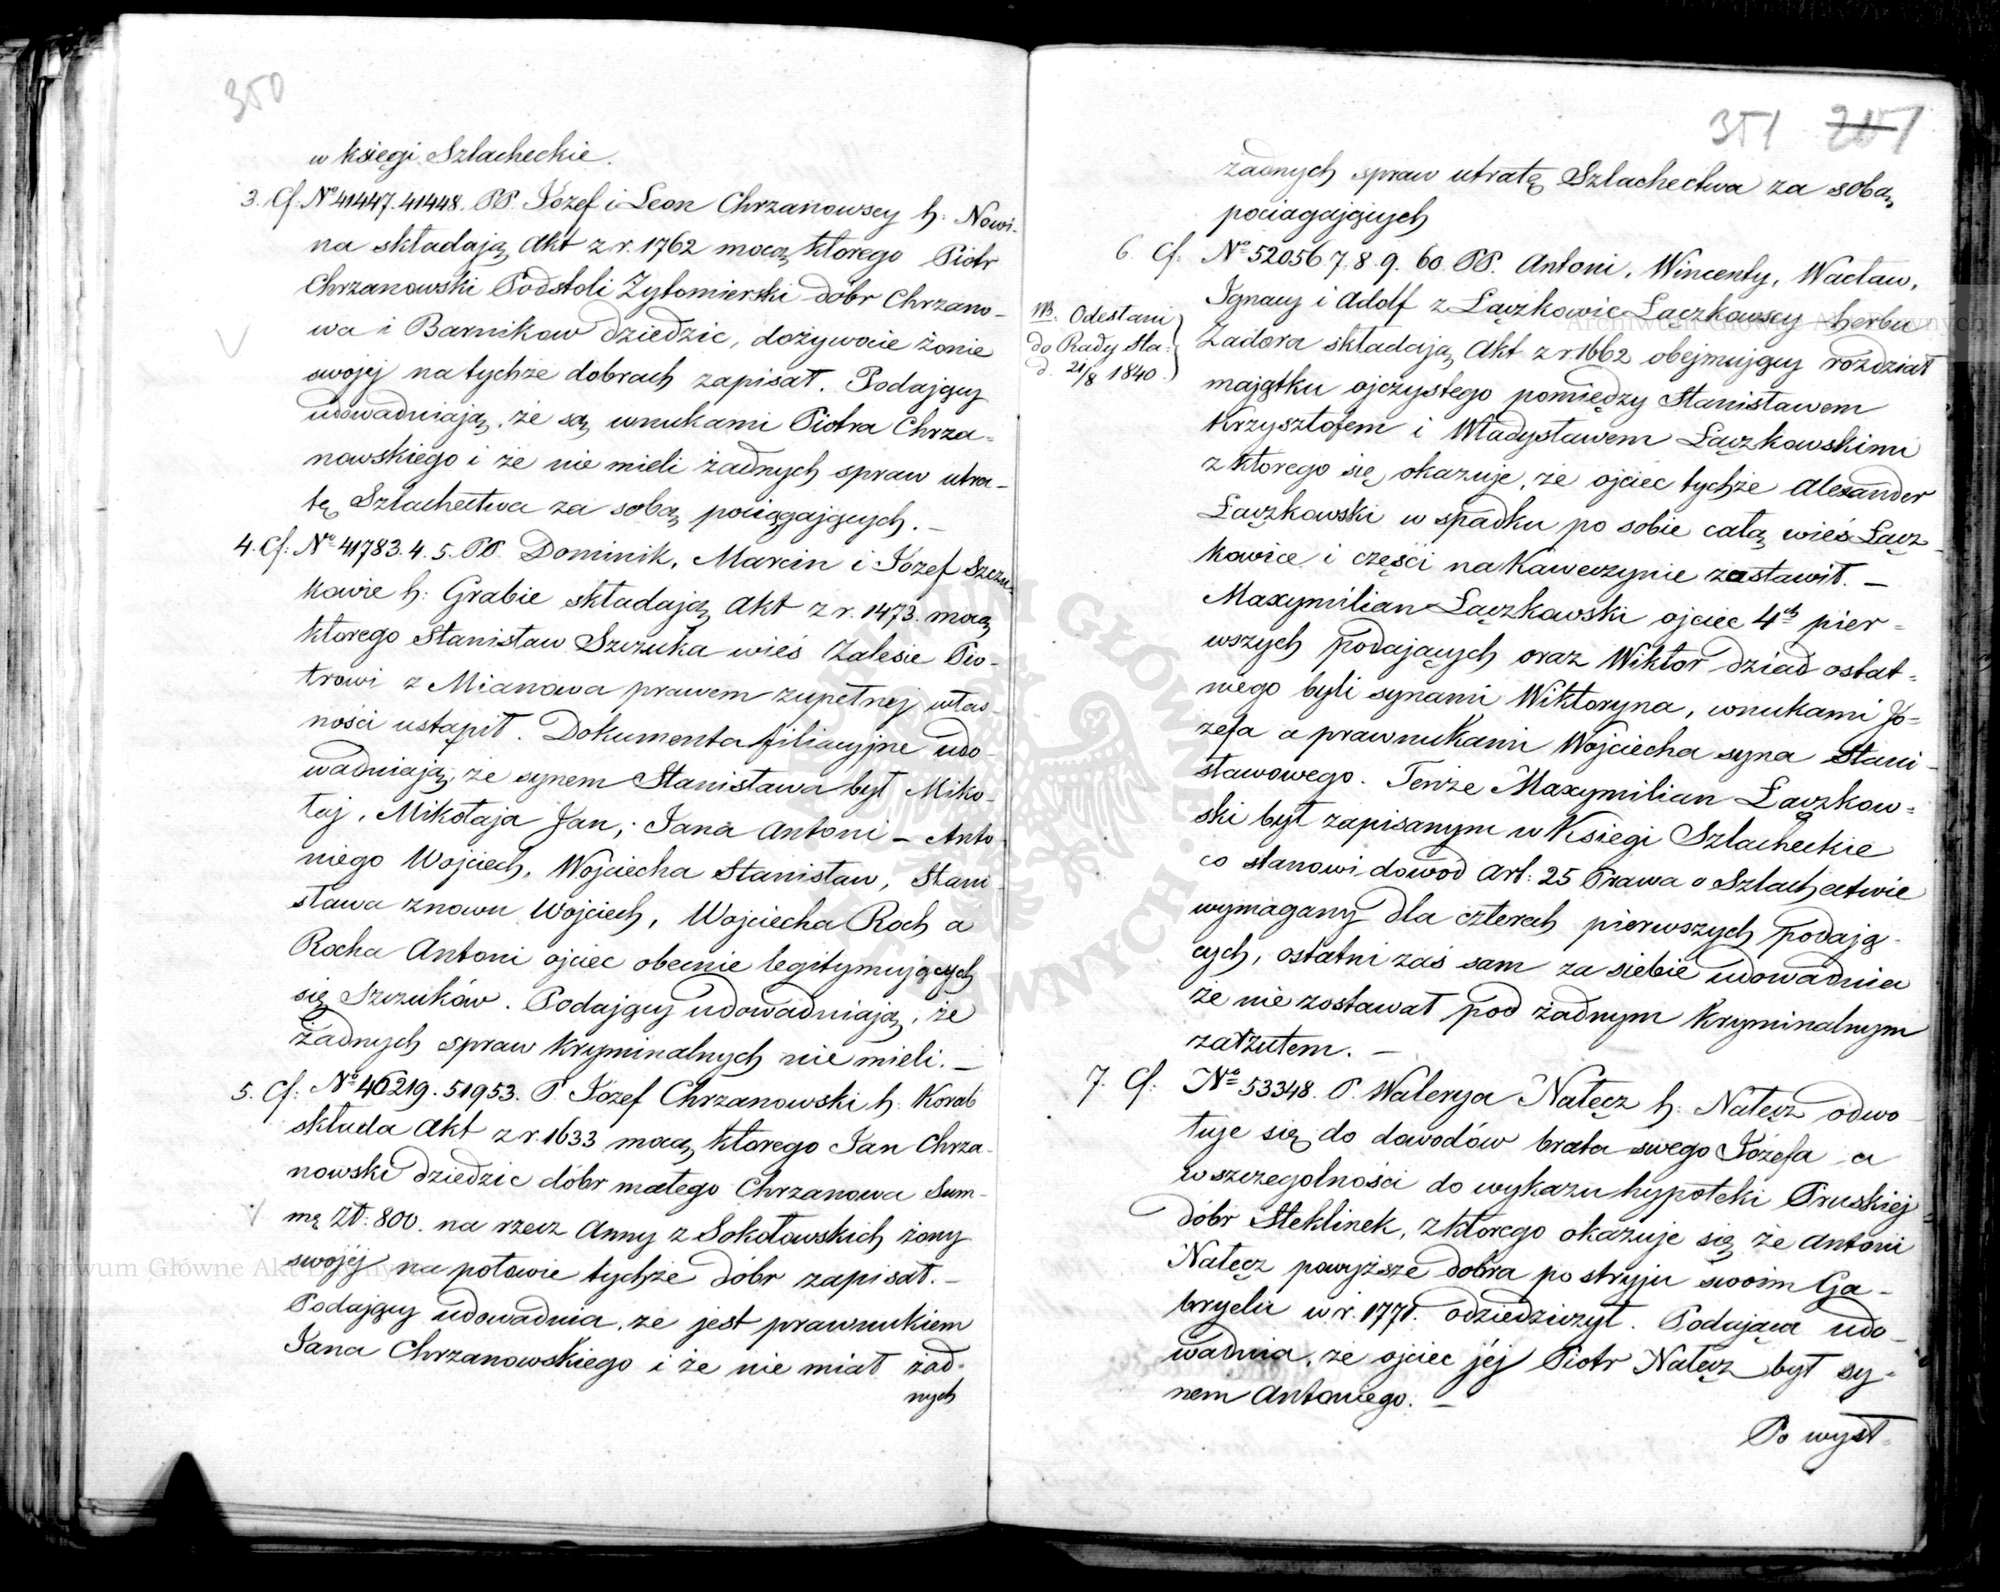 350
w księgi Szlacheckie.
3. Cf. No 41447. 41448. PP. Józef i Leon Chrzanowscy h: Nowi-
na składają Akt z r. 1762 mocą ktorego Piotr
Chrzanowski Podstoli Zytomierski dobr Chrzano-
wa i Barnikow dziedzic, dożywocie żonie
swojéj na tychże dobrach zapisał. Podający
udowadniają, że są wnukami Piotra Chrza-
nowskiego i że nie mieli żadnych spraw utra-
tę Szlachectwa za sobą pociągających. –
4. Cf: No 41783. 4. 5. PP. Dominik, Marcin i Józef Szczu-
kowie h: Grabie składają Akt z r. 1473. mocą
ktorego Stanisław Szczuka wieś Zalesie Pio-
trowi z Mianowa prawem zupełnej włas-
ności ustąpił. Dokumenta filiacyjne udo-
wadniają, że synem Stanisława był Miko-
łaj, Mikołaja Jan, Jana Antoni – Anto-
niego Wojciech, Wojciecha Stanisław, Stani-
sława znowu Wojciech, Wojciecha Roch a
Rocha Antoni ojciec obecnie legitymujących
się Szczuków. Podający udowadniają, że
żadnych spraw kryminalnych nie mieli. –
5. Cf: No 46219. 51953. P. Józef Chrzanowski h: Korab
składa Akt z r. 1633 mocą ktorego Jan Chrza-
nowski dziedzic dóbr małego Chrzanowa Sum-
mę Zł: 800. na rzecz Anny z Sokołowskich żony
swojéj na połowie tychże dóbr zapisał. –
Podający udowadnia, że jest prawnukiem
Jana Chrzanowskiego i że nie miał żad-
nych
351 207
żadnych spraw utratę Szlachectwa za sobą
pociągających
6. Cf: No 52056. 7. 8. 9. 60. PP. Antoni, Wincenty, Wacław,
Ignacy i Adolf z Łączkowic Łączkowscy herbu
NB. Odesłani
do Rady Sta:
d. 21/8 1840.
Zadora składają Akt z r 1662 obejmujący rozdział
majątku ojczystego pomiędzy Stanisławem
Krzysztofem i Władysławem Łączkowskimi
z ktorego się okazuje, że ojciec tychże Alexander
Łączkowski w spadku po sobie całą wieś Łącz-
kowice i części na Kawęczynie zostawił. –
Maxymilian Łączkowski ojciec 4ch pier-
wszych podających oraz Wiktor dziad ostat-
niego byli synami Wiktoryna, wnukami Jó-
zefa a prawnukami Wojciecha syna Stani-
sławowego. Tenże Maxymilian Łączkow-
ski był zapisanym w Księgi Szlacheckie
co stanowi dowód Art: 25 Prawa o Szlachectwie
wymagany dla czterech pierwszych podają-
cych, ostatni zaś sam za siebie udowadnia
że nie zostawał pod żadnym kryminalnym
zarzutem. –
7. Cf: No 53348. P. Walerya Nałęcz h: Nałęcz odwo-
łuje się do dowodów brata swego Józefa a
w szczególności do wykazu hypoteki Pruskiej
dóbr Steklinek, z ktorego okazuje się że Antoni
Nałęcz powyższe dobra po stryju swoim Ga-
bryelu w r. 1771. odziedziczył. Podająca udo-
wadnia, że ojciec jéj Piotr Nałęcz był sy-
nem Antoniego. –
Po wysł-
Archiwum Główne Akt Dawnych